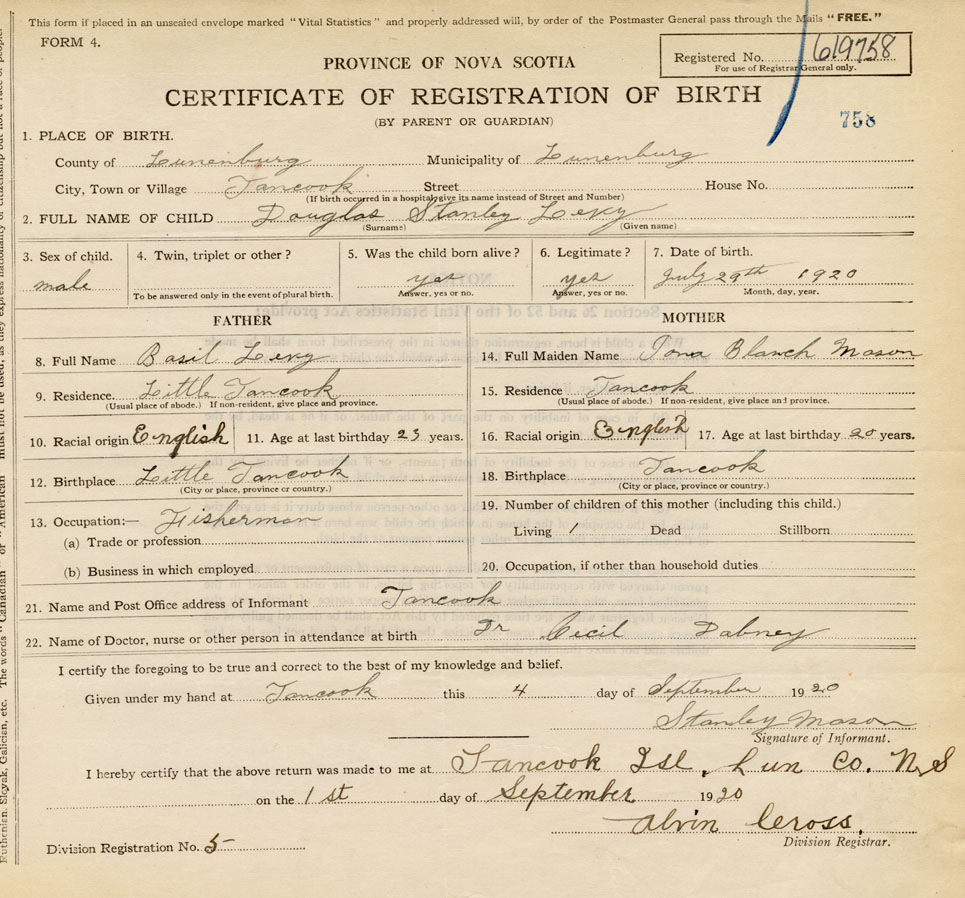 This form if placed in an unsealed envelope marked "Vital Statistics" and properly addressed will, by order of the Postmaster General pass through the Mails "FREE."
FORM 4.
Registered No. 619758
For use of Registrar General only.
PROVINCE OF NOVA SCOTIA
CERTIFICATE OF REGISTRATION OF BIRTH
(BY PARENT OR GUARDIAN)
758
1. PLACE OF BIRTH.
County of Lunenburg Municipality of Lunenburg
City, Town or Village Tancook Street House No.
(If birth occurred in a hospital, give its name instead of Street and Number)
2. FULL NAME OF CHILD Douglas Stanley Levy
(Surname) (Given name)
3. Sex of child. 4. Twin, triplet or other? 5. Was the child born alive? 6. Legitimate? 7. Date of birth.
male yes yes July 29th 1920
To be answered only in the event of plural birth. Answer, yes or no. Answer, yes or no. Month, day, year.
FATHER MOTHER
8. Full Name Basil Levy 14. Full Maiden Name Iona Blanch Mason
9. Residence. Little Tancook 15. Residence Tancook
(Usual place of abode.) If non-resident, give place and province. (Usual place of abode.) If non-resident, give place and province.
10. Racial origin English 11. Age at last birthday 23 years. 16. Racial origin English 17. Age at last birthday 20 years.
12. Birthplace Little Tancook 18. Birthplace Tancook
(City or place, province or country.) (City or place, province or country.)
13. Occupation:— Fisherman 19. Number of children of this mother (including this child.)
(a) Trade or profession Living 1 Dead Stillborn
(b) Business in which employed 20. Occupation, if other than household duties
21. Name and Post Office address of Informant Tancook
22. Name of Doctor, nurse or other person in attendance at birth Dr Cecil Dabney
I certify the foregoing to be true and correct to the best of my knowledge and belief.
Given under my hand at Tancook this 4 day of September 1920
Stanley Mason
Signature of Informant.
I hereby certify that the above return was made to me at Tancook Isl, Lun Co. N.S
on the 1st day of September 1920
Alvin Cross,
Division Registrar.
Division Registration No. 5